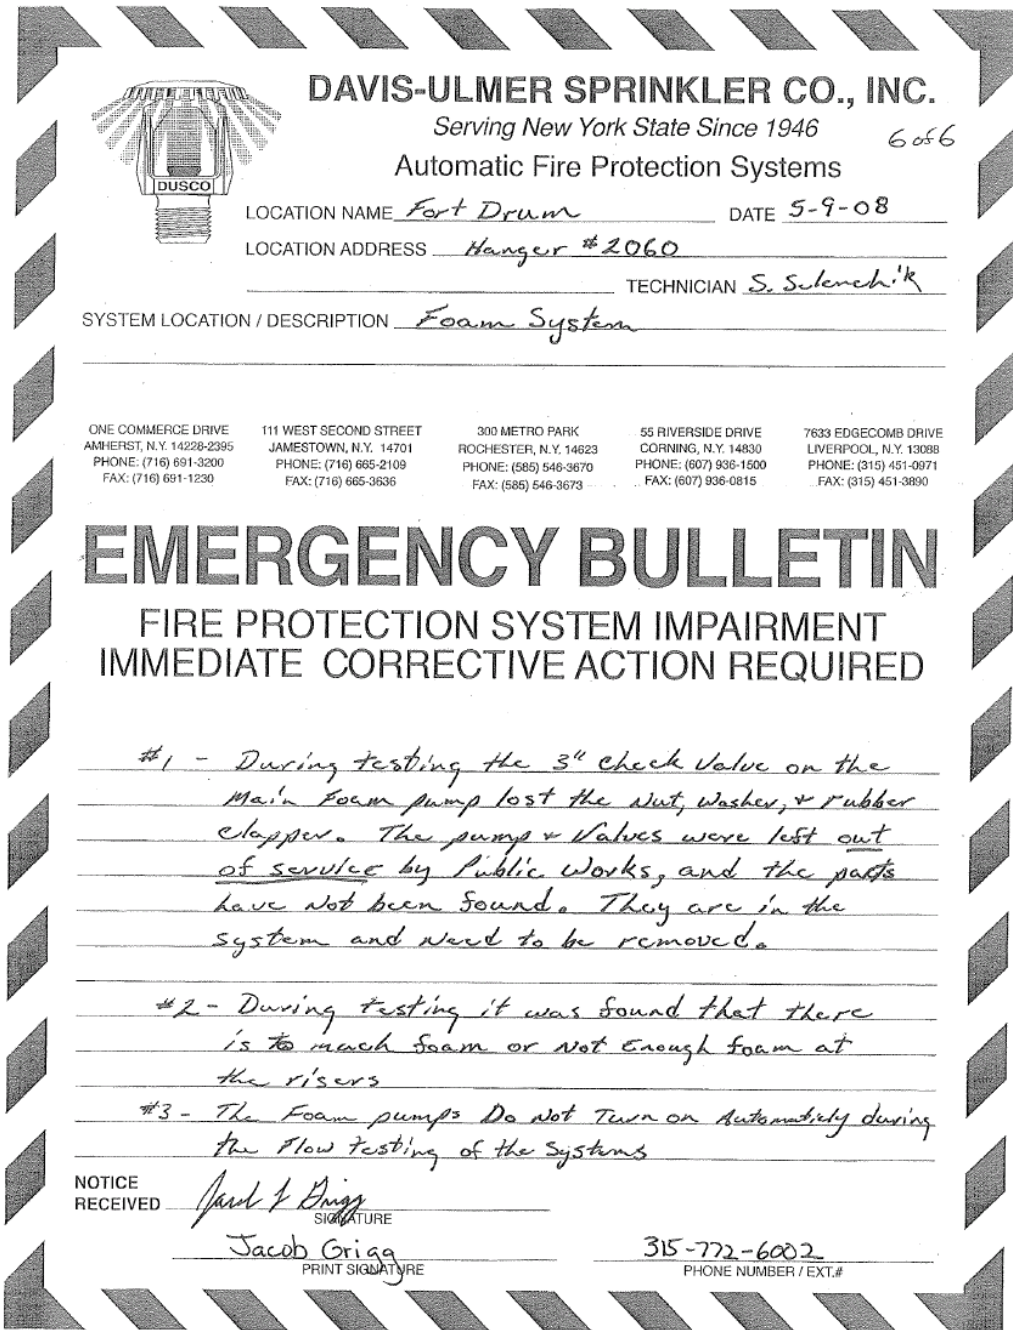 DAVIS-ULMER SPRINKLER CO., INC.
Serving New York State Since 1946
6 of 6
Automatic Fire Protection Systems
DUSCO
LOCATION NAME Fort Drum DATE 5-9-08
LOCATION ADDRESS Hanger #2060
TECHNICIAN S. Sulenchik
SYSTEM LOCATION / DESCRIPTION Foam System
ONE COMMERCE DRIVE
AMHERST, N.Y. 14228-2395
PHONE: (716) 691-3200
FAX: (716) 691-1230
111 WEST SECOND STREET
JAMESTOWN, N.Y. 14701
PHONE: (716) 665-2109
FAX: (716) 665-3636
300 METRO PARK
ROCHESTER, N.Y. 14623
PHONE: (585) 546-3670
FAX: (585) 546-3673
55 RIVERSIDE DRIVE
CORNING, N.Y. 14830
PHONE: (607) 936-1500
FAX: (607) 936-0815
7633 EDGECOMB DRIVE
LIVERPOOL, N.Y. 13088
PHONE: (315) 451-0971
FAX: (315) 451-3890
EMERGENCY BULLETIN
FIRE PROTECTION SYSTEM IMPAIRMENT
IMMEDIATE CORRECTIVE ACTION REQUIRED
#1 - During testing the 3" check Valve on the
Main Foam pump lost the Nut, Washer, & rubber
clapper. The pump & Valves were left out
of service by Public Works, and the parts
have Not been found. They are in the
system and Need to be removed.
#2 - During testing it was found that there
is to mach foam or Not Enough foam at
the risers
#3 - The Foam pumps Do Not Turn on Automaticly during
the Flow testing of the Systems
NOTICE
RECEIVED
SIGNATURE
Jacob Grigg
PRINT SIGNATURE
315-772-6002
PHONE NUMBER / EXT.#